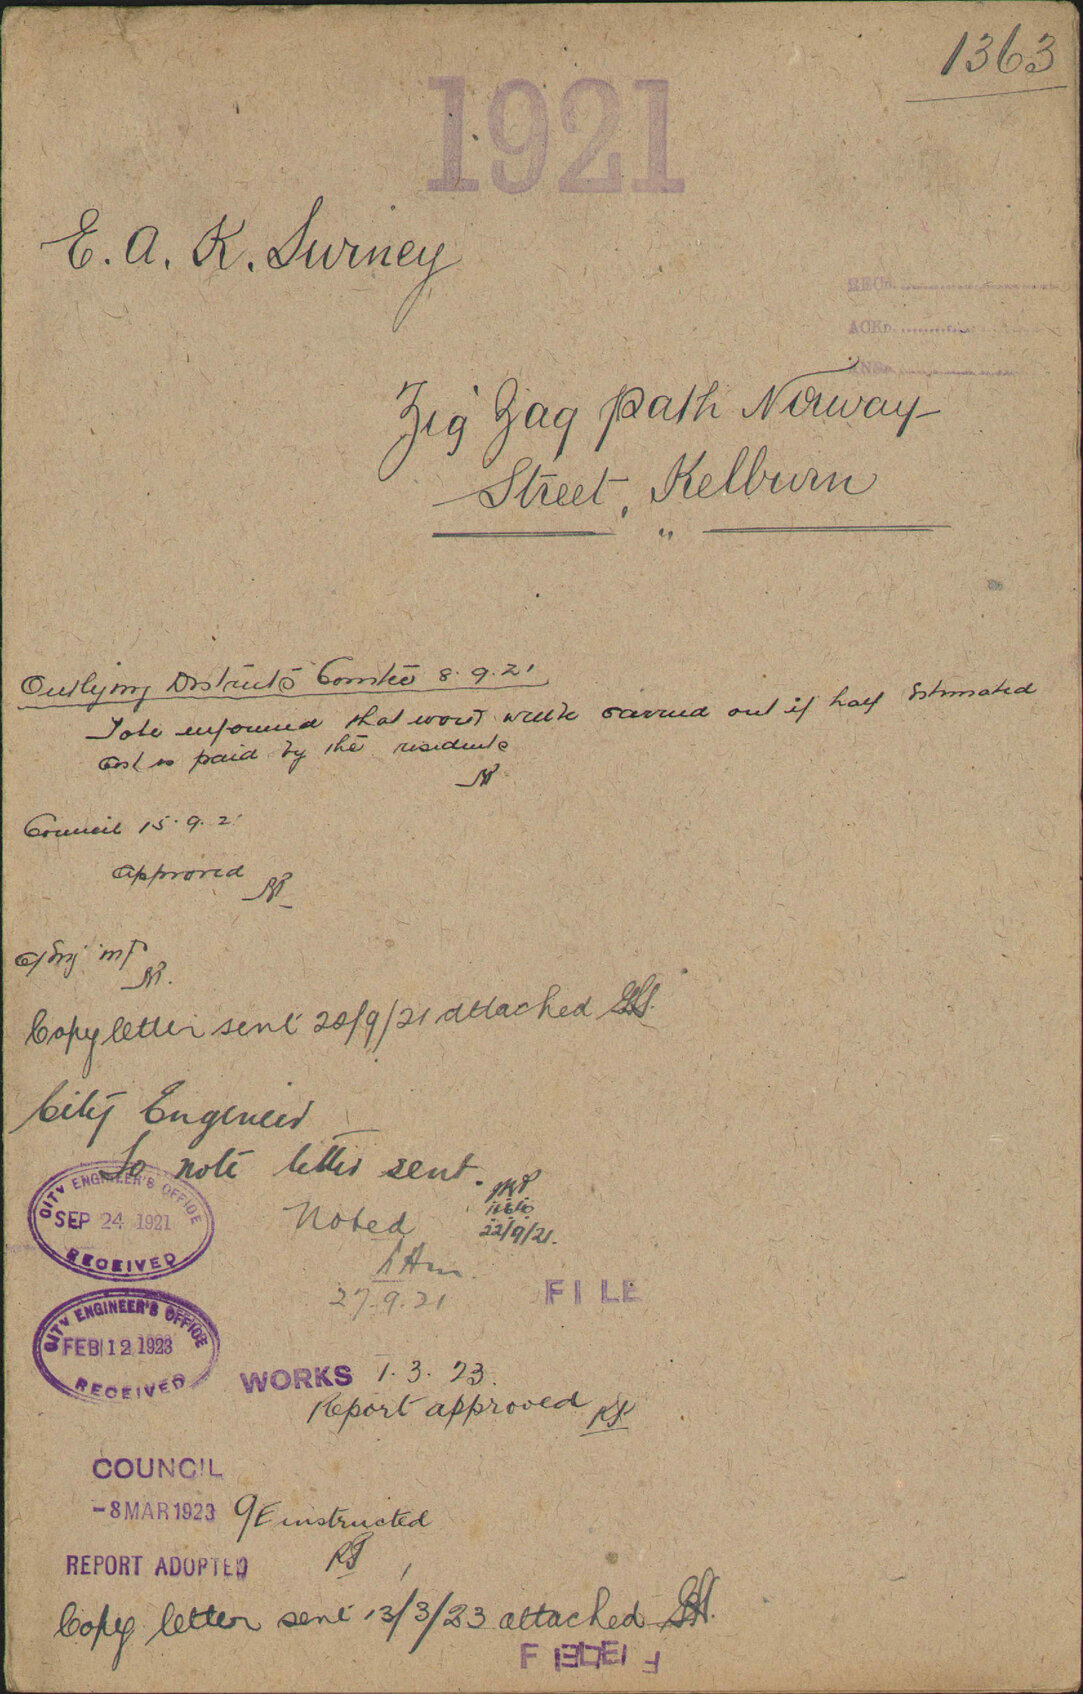 1363
1921
E. A. K. Surney
REC'D
ACKD
ANSD
Zig Zag path Norway
Street, Kelburn
"
Outlying Districts Comtee 8.9.21
To be informed that work will be carried out if half Estimated
cost is paid by the residents
Council 15.9.21
approved
Copy letter sent 20/9/21 attached
City Engineer
To note letter sent.
22/9/21.
CITY ENGINEER'S OFFICE
SEP 24 1921
RECEIVED
Noted
27.9.21
FILE
CITY ENGINEER'S OFFICE
FEB 12 1923
RECEIVED
WORKS 1.3.23.
Report approved
COUNCIL
-8 MAR 1923 CE instructed
REPORT ADOPTED
Copy letter sent 13/3/23 attached